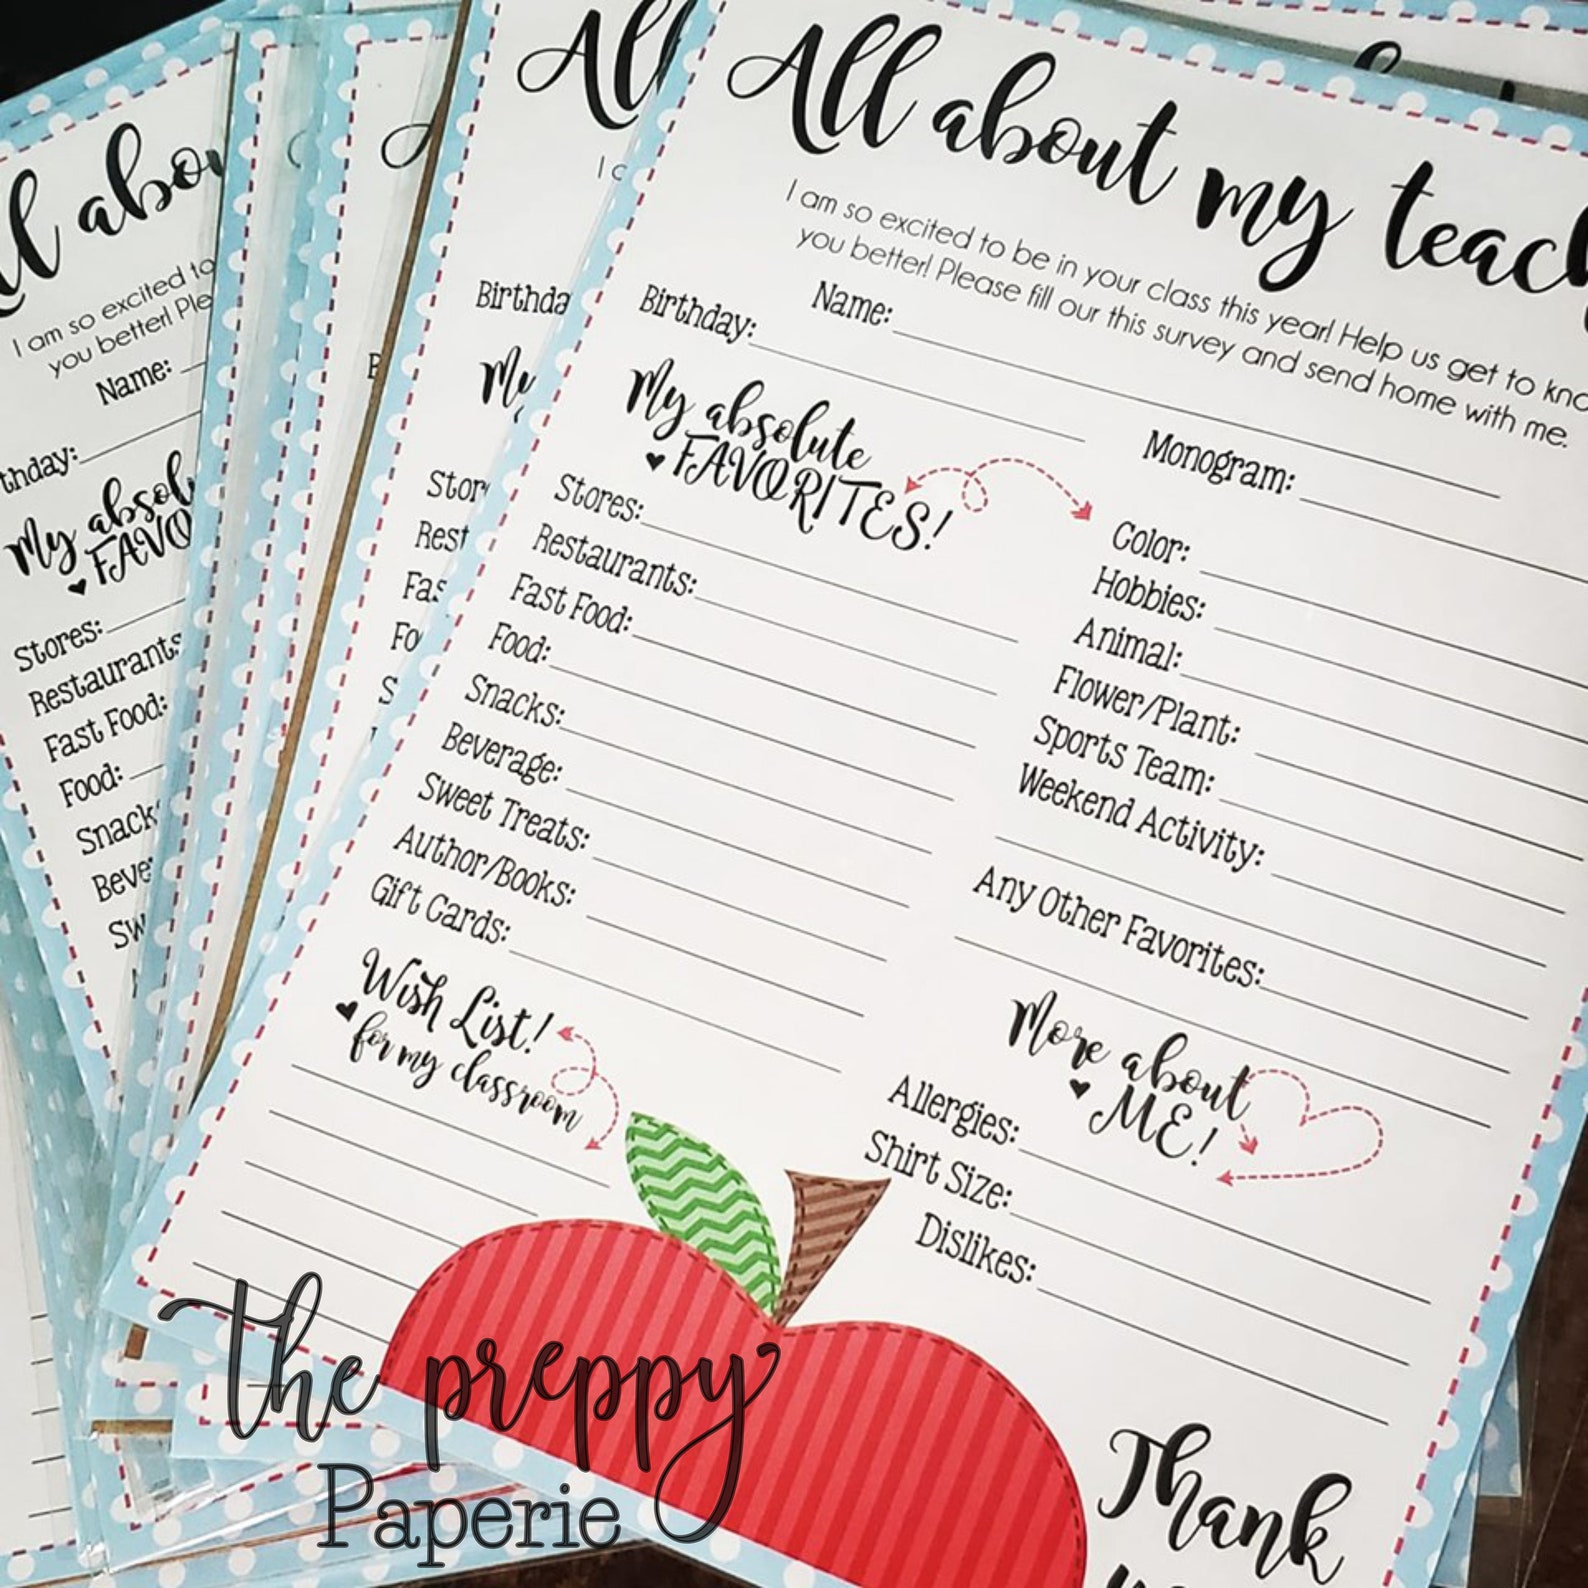 All about my teach
I am so excited to be in your class this year! Help us get to kno
you better! Please fill our this survey and send home with me.
Name:
Birthday:
Monogram:
My absolute
FAVORITES!
Stores:
Restaurants:
Fast Food:
Food:
Snacks:
Beverage:
Sweet Treats:
Author/Books:
Gift Cards:
Color:
Hobbies:
Animal:
Flower/Plant:
Sports Team:
Weekend Activity:
Any Other Favorites:
Wish List!
for my classroom
More about
ME!
Allergies:
Shirt Size:
Dislikes:
Thank
the preppy
Paperie
All
I a
Birthda
My
Stor
Rest
Fas
Foo
S
All abou
I am so excited to
you better! Ple
Name:
thday:
My absol
FAVO
Stores:
Restaurants
Fast Food:
Food:
Snack
Beve
Sw